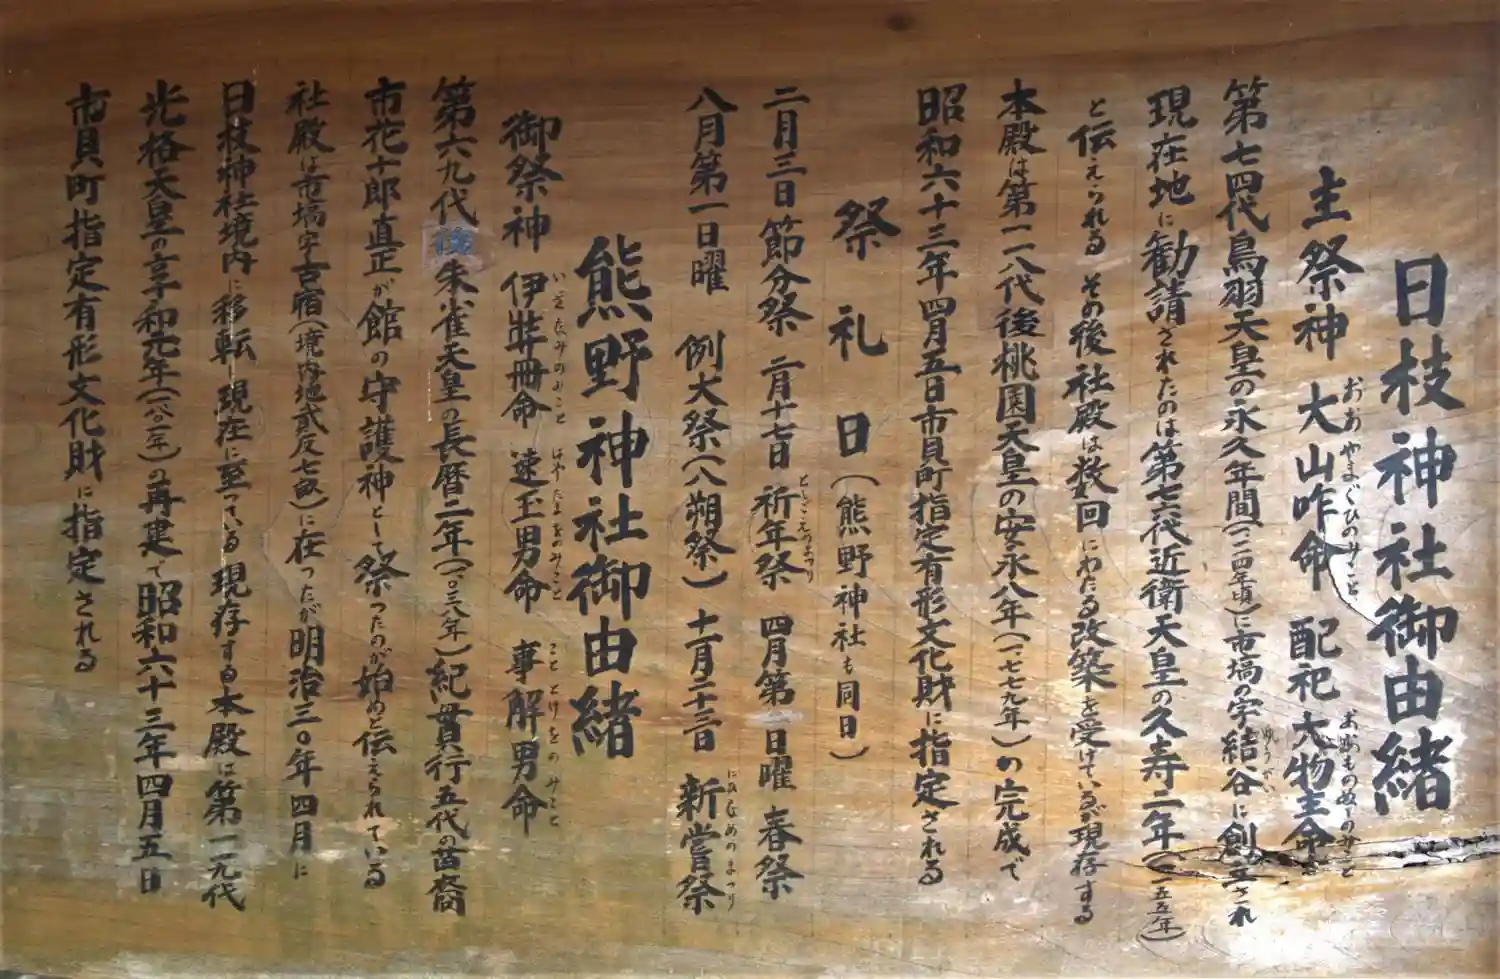 日枝神社御由緒
主祭神 大山咋命 配祀 大物主命
おおやまぐひのみこと おおものぬしのみこと
第七四代鳥羽天皇の永久年間(一一一四年頃)に市塙の字結谷に創立され
ゆうがい
現在地に勧請されたのは第七六代近衛天皇の久寿二年(一一五五年)
と伝えられる その後社殿は数回にわたる改築を受けているが現存する
本殿は第一一八代後桃園天皇の安永八年(一七七九年)の完成で
昭和六十三年四月五日市貝町指定有形文化財に指定される
祭礼日(熊野神社も同日)
二月三日節分祭 二月十七日 祈年祭 四月第一日曜 春祭
としごえのまつり
八月第一日曜 例大祭(八朔祭) 十一月二十三日 新嘗祭
にひなめのまつり
熊野神社御由緒
御祭神 伊弉冊命 速玉男命 事解男命
いざなみのみこと はやたまをのみこと こととけをのみこと
第六九代後朱雀天皇の長暦二年(一〇三八年)紀貫行五代の苗裔
市花十郎直正が館の守護神として祭ったのが始めと伝えられている
社殿は市塙字古宿(境内地弐反七畝)に在ったが明治三〇年四月に
日枝神社境内に移転 現在に至っている 現存する本殿は第一一九代
光格天皇の享和元年(一八〇一年)の再建で昭和六十三年四月五日
市貝町指定有形文化財に指定される